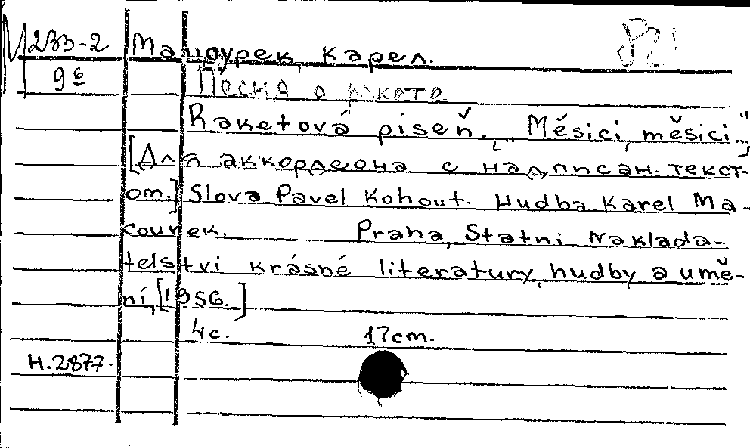 М 233-2 Мацоурек, Карел. р2
9б Песня о ракете
Raketová píseň. „Měsíci, měsíci..."
[Для аккордеона с надписан. текст-
ом.] Slova Pavel Kohout. Hudba Karel Ma-
courek. Praha, Statni Naklada-
telstvi krásné literatury, hudby a umě-
ní, [1956.]
4с. 17cm.
Н.2877.